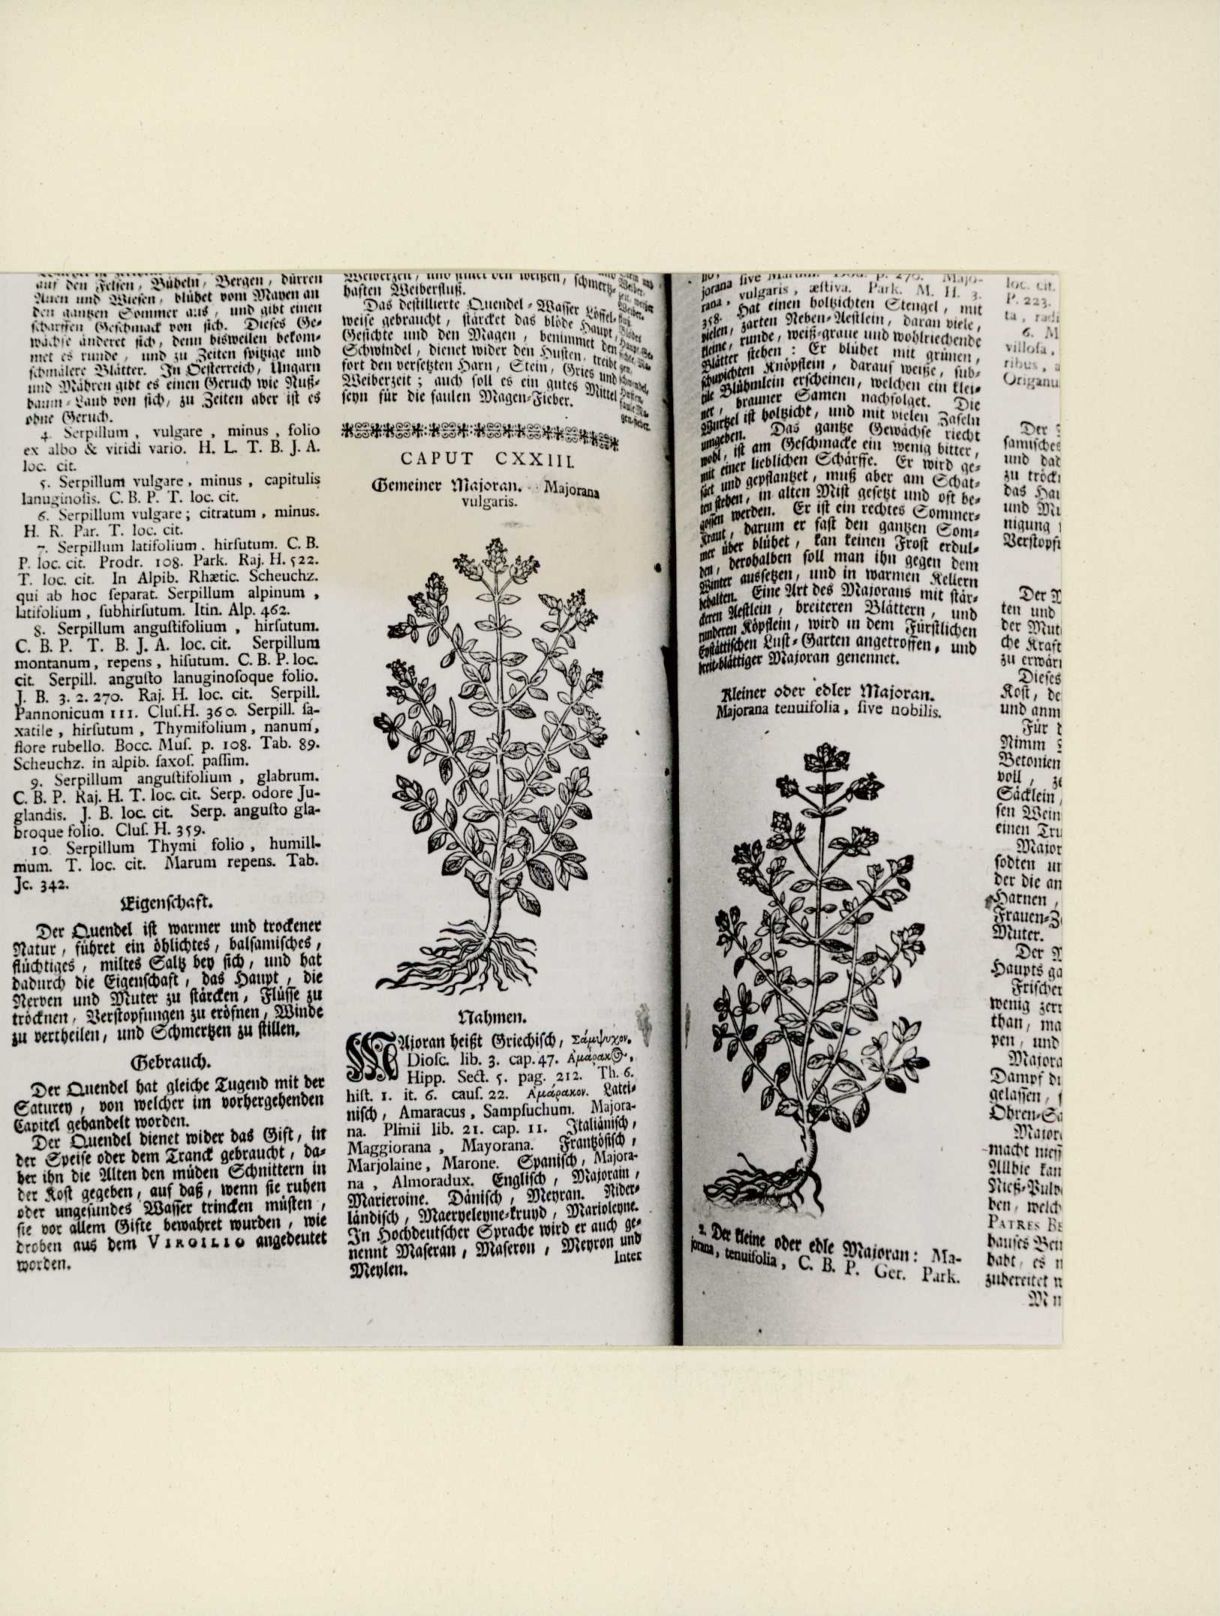 auf den Felsen, Büheln, Bergen, dürren
Auen und Wiesen, blühet vom Mayen an
den gantzen Sommer aus, und gibt einen
scharffen Geschmack von sich. Dieses Ge-
wächse änderet sich, denn bisweilen bekom-
met es runde, und zu Zeiten spitzige und
schmälere Blätter. In Oesterreich, Ungarn
und Mähren gibt es einen Geruch wie Nuß-
baum-Laub von sich, zu Zeiten aber ist es
ohne Geruch.
4. Serpillum, vulgare, minus, folio
ex albo & viridi vario. H. L. T. B. J. A.
loc. cit.
5. Serpillum vulgare, minus, capitulis
lanuginosis. C. B. P. T. loc. cit.
6. Serpillum vulgare; citratum, minus.
H. R. Par. T. loc. cit.
7. Serpillum latifolium. hirsutum. C. B.
P. loc. cit. Prodr. 108. Park. Raj. H. 522.
T. loc. cit. In Alpib. Rhætic. Scheuchz.
qui ab hoc separat. Serpillum alpinum,
latifolium, subhirsutum. Itin. Alp. 462.
8. Serpillum angustifolium, hirsutum.
C. B. P. T. B. J. A. loc. cit. Serpillum
montanum, repens, hisutum. C. B. P. loc.
cit. Serpill. angusto lanuginosoque folio.
J. B. 3. 2. 270. Raj. H. loc. cit. Serpill.
Pannonicum III. Clus. H. 360. Serpill. sa-
xatile, hirsutum, Thymifolium, nanum,
flore rubello. Bocc. Mus. p. 108. Tab. 89.
Scheuchz. in alpib. saxos. passim.
9. Serpillum angustifolium, glabrum.
C. B. P. Raj. H. T. loc. cit. Serp. odore Ju-
glandis. J. B. loc. cit. Serp. angusto gla-
broque folio. Clus. H. 359.
10. Serpillum Thymi folio, humill-
mum. T. loc. cit. Marum repens. Tab.
Jc. 342.
Eigenschaft.
Der Quendel ist warmer und trockener
Natur, führet ein öhlichtes, balsamisches,
flüchtiges, miltes Saltz bey sich, und hat
dadurch die Eigenschaft, das Haupt, die
Nerven und Muter zu stärcken, Flüsse zu
tröcknen, Verstopfungen zu eröfnen, Winde
zu vertheilen, und Schmertzen zu stillen.
Gebrauch.
Der Quendel hat gleiche Tugend mit der
Saturey, von welcher im vorhergehenden
Capitel gehandelt worden.
Der Quendel dienet wider das Gift, in
der Speise oder dem Tranck gebraucht, da-
her ihn die Alten den müden Schnittern in
der Kost gegeben, auf daß, wenn sie ruhen
oder ungesundes Wasser trincken müsten,
sie vor allem Gifte bewahret wurden, wie
droben aus dem VIRGILIO angedeutet
worden.
haften Weiberfluß.
Das destillierte Quendel-Wasser
weise gebraucht, stärcket das blöde Haupt,
Gesichte und den Magen, benimmet den
Schwindel, dienet wider den Husten, treibt
fort den versetzten Harn, Stein, Gries und
Weiberzeit; auch soll es ein gutes Mittel
seyn für die faulen Magen-Fieber.
CAPUT CXXIII.
Gemeiner Majoran. Majorana
vulgaris.
Nahmen.
MAjoran heißt Griechisch, Σάμψυχον.
Diosc. lib. 3. cap. 47. Ἀμάρακος,
Hipp. Sect. 5. pag. 212. Th. 6.
hist. 1. it. 6. caus. 22. Ἀμάρακον. Latei-
nisch, Amaracus, Sampsuchum. Majora-
na. Plinii lib. 21. cap. 11. Italiänisch,
Maggiorana, Mayorana. Frantzösisch,
Marjolaine, Marone. Spanisch, Majora-
na, Almoradux. Englisch, Majoram,
Marieroine. Dänisch, Meyran. Nider-
ländisch, Maeryeleyne-kruyd, Marioleyne.
In Hochdeutscher Sprache wird er auch ge-
nennt Maseran, Maseron, Meyron und
Meylen.
Inter
jorana sive
rana, vulgaris, æstiva. Park. M. H. 3.
358. Hat einen holtzichten Stengel, mit
vielen, zarten Neben-Aestlein, daran viele,
kleine, runde, weiß-graue und wohlriechende
Blätter stehen: Er blühet mit grünen,
schupichten Knöpflein, darauf weiße, sub-
tile Blühmlein erscheinen, welchen ein klei-
ner, brauner Samen nachfolget. Die
Wurtzel ist holtzicht, und mit vielen Zaseln
umgeben. Das gantze Gewächse riecht
wohl, ist am Geschmacke ein wenig bitter,
mit einer lieblichen Schärffe. Er wird ge-
säet und gepflantzet, muß aber am Schat-
ten stehen, in alten Mist gesetzt und oft be-
gossen werden. Er ist ein rechtes Sommer-
Kraut, darum er fast den gantzen Som-
mer über blühet, kan keinen Frost erdul-
den, derohalben soll man ihn gegen dem
Winter aussetzen, und in warmen Kellern
behalten. Eine Art des Majorans mit stär-
ckeren Aestlein, breiteren Blättern, und
runderen Köpflein, wird in dem Fürstlichen
Eystättischen Lust-Garten angetroffen, und
breit-blättiger Majoran genennet.
Kleiner oder edler Majoran.
Majorana tenuifolia, sive nobilis.
2. Der kleine oder edle Majoran: Ma-
jorana, tenuifolia, C. B. P. Ger. Park.
loc. cit.
P. 223.
ta, radi
6. M
villosa,
ribus,
Origanu
Der
samisches
und dad
zu tröck
das Hau
und Mu
nigung
Verstopf
Der M
ten und
der Mut
che Kraft
zu erwär
Dieses
Kost, de
und anm
Für
Nimm
Betonien
voll,
Säcklein
sen Wein
einen Tru
Major
sodten
der die an
Harnen,
Frauen-Z
Muter.
Der M
Haupts
Frischer
wenig zer
than, ma
pen, und
Majora
Dampf
gelassen,
Ohren-Sa
Majora
macht
Allhie kan
Nieß-Pulv
ben, welch
PATRES BE
hauses Ben
habt, es
zubereitet